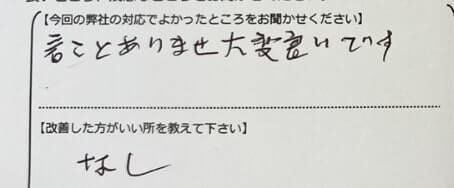 【今回の弊社の対応でよかったところをお聞かせください】
言ことありませ大変良いてす
【改善した方がいい所を教えて下さい】
なし